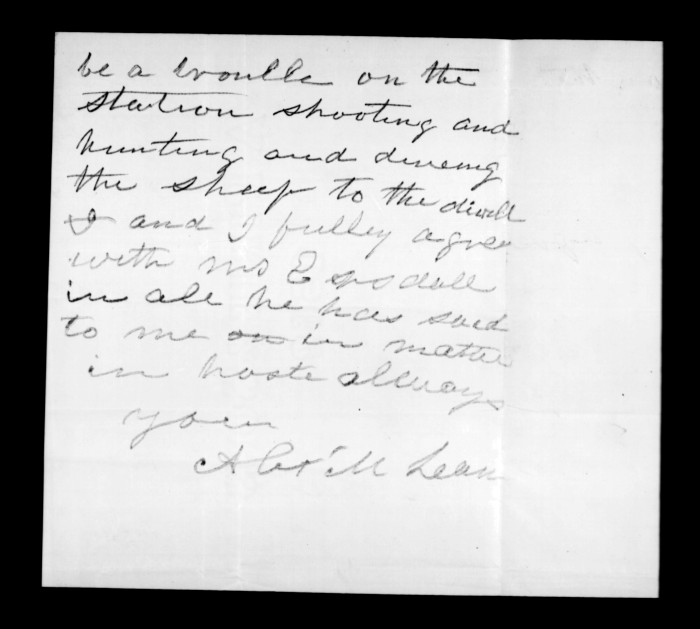 be a troulle on the
station shooting and
hunting and driveing
the sheep to the divell
and I fulley agree
with mr E
in all he has said
to me on in matter
in haste allways
your
Alex McLean